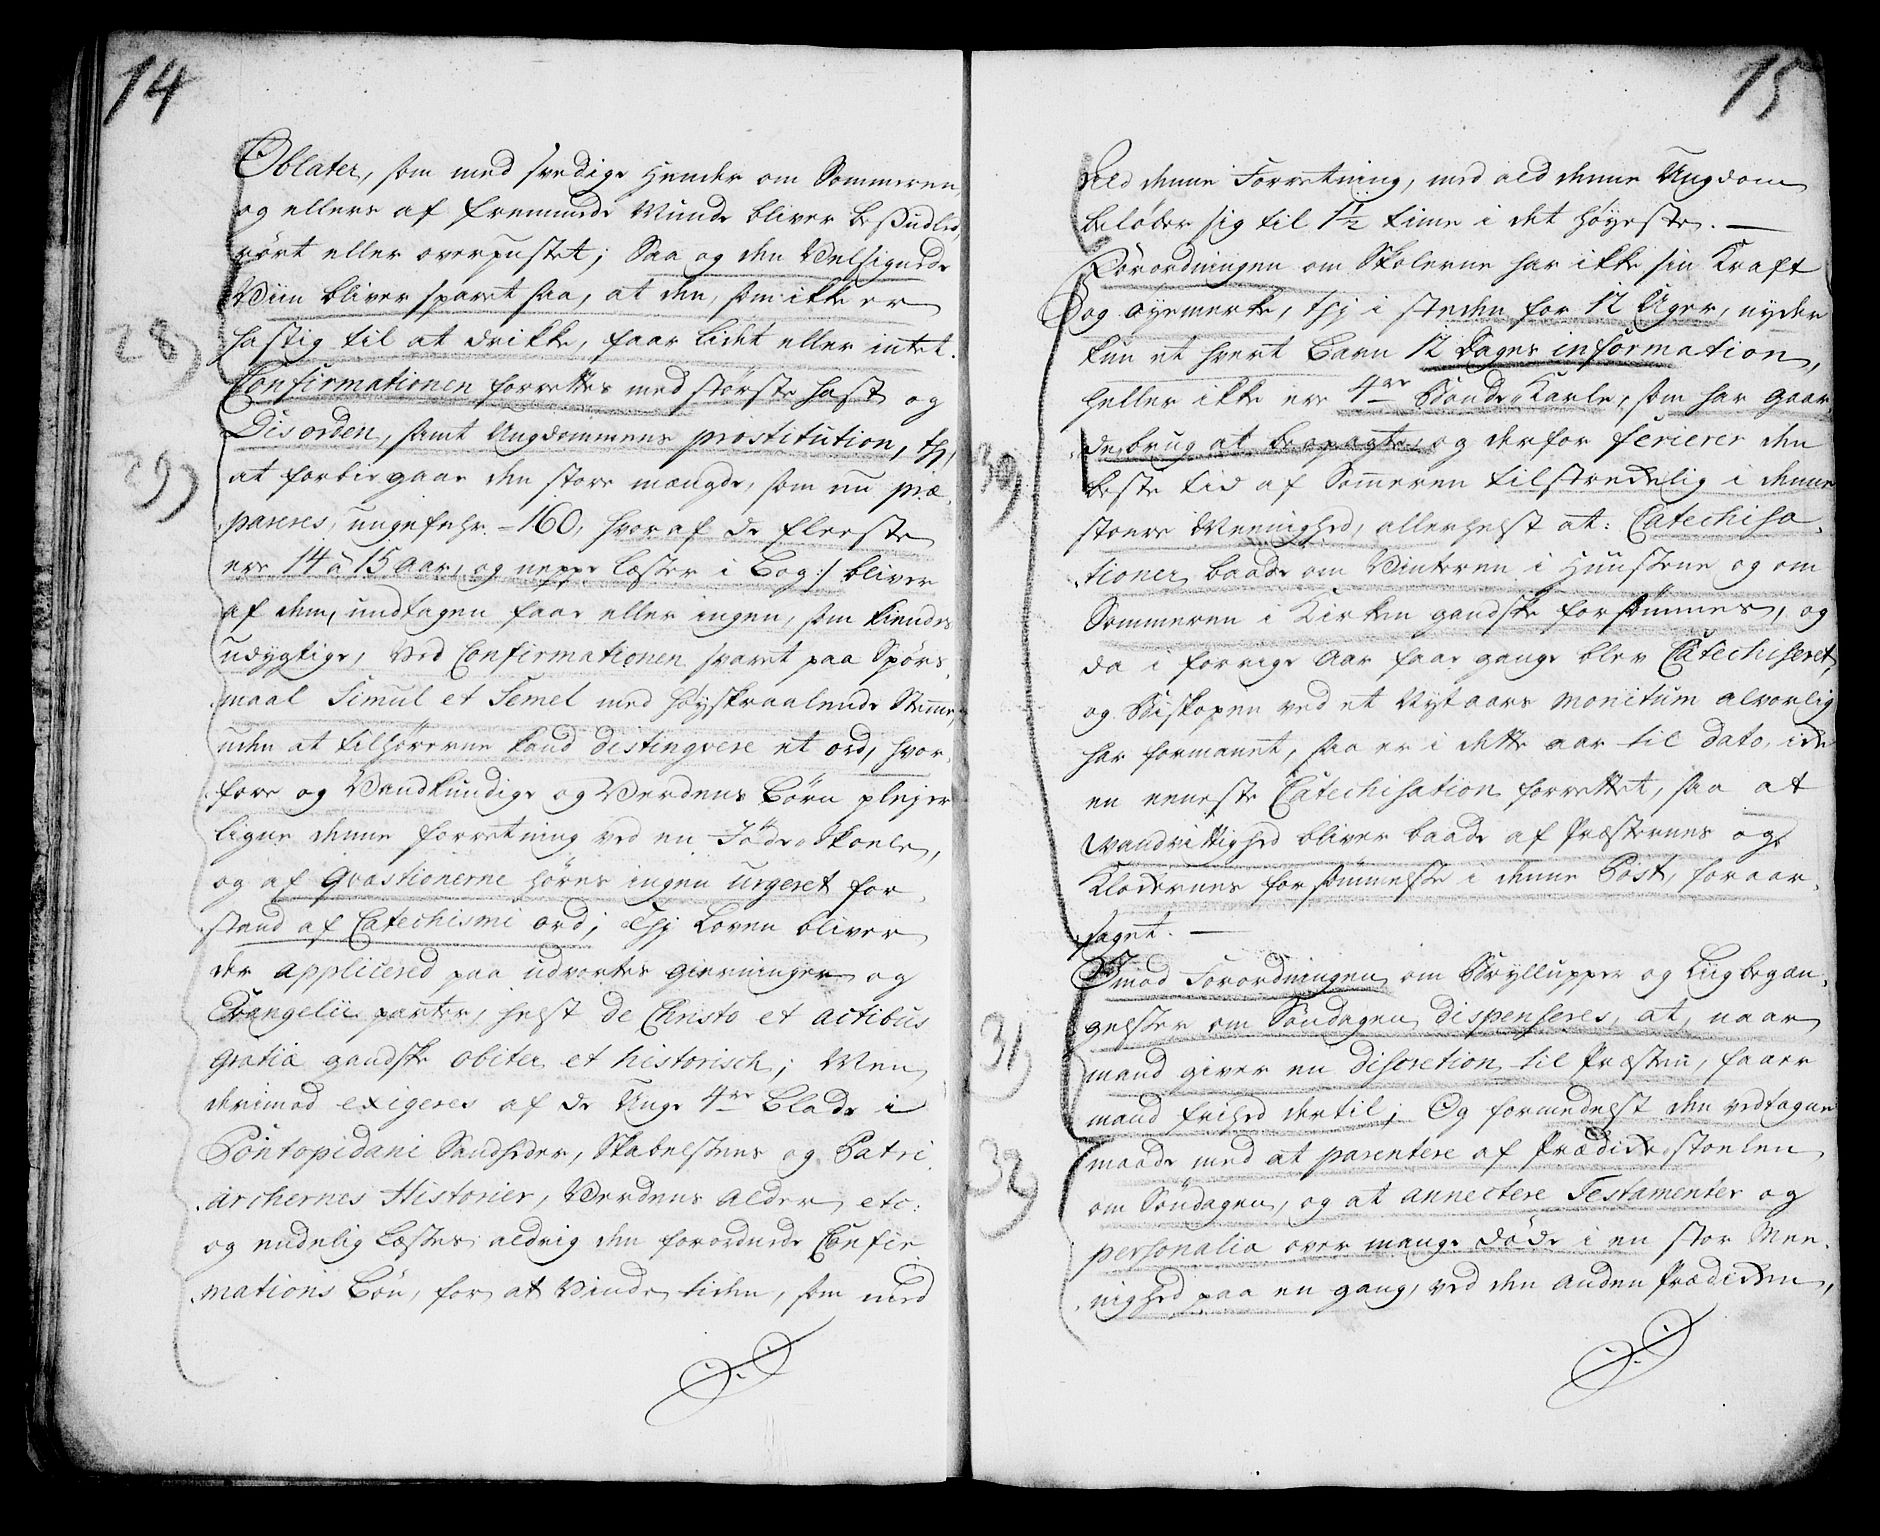 14
Oblater, som med svedige Hender om Sommeren
og ellers af fremmede Munde bliver besudled,
rört eller overpustet; Saa og den Velsignede
Viin bliver sparet saa, at den, som ikke er
28) hastig til at drikke, faar lidet eller intet.
Confirmationen forrettes med störste hast og
Disorden, samt Ungdommens prostitution, thj,
29) at forbiegaae den store mængde, som nu præ-
pareres, ungefehr 160, hvoraf de fleeste
ere 14 à 15 Aar, og neppe læser i Bog :/ bliver
af dem, undtagen faae eller ingen, som kiendes
udygtige, ved Confirmationen svaret paa Spörs-
maal Simul et Semel med höyskraalende Stemme,
uden at tilhörerne kand distingvere et ord, hvor-
fore og Vandkundige og Verdens Börn plejer
ligne denne forretning ved en Jöde-Skoele,
og af Qvæstionerne höres ingen urgeret for-
stand af Catechismi ord; Thj Loven bliver
der appliceret paa udvortes gierninger og
Evangelii parter, helst de Christo et actibus
gratiæ gandske obiter et historisch; Men
derimod exigeres af de Unge 4re Blade i
Pontopidani Sandheder, Skabelsens og Patri-
archernes Historier, Verdens Alder etc:
og endelig læses aldrig den forordnede Confir-
mations Bön, for at vinde tiden, som med
15
ald denne Forretning, med ald denne Ungdom
belöber sig til 1½ time i det höyeste. —
Forordningen om Skolerne har ikke sin Kraft
og öyemerke, thj i steden for 12 Uger, nyder
kun et hvert Barn 12 Dages information,
heller ikke ere 4re Bönder-Karle, som har gaar-
30) de brug at beopagte, og derfor ferierer den
beste tid af Sommeren tilstrekelig i denne
store Menighed, allerhelst at: Catechisa-
tioner baade om Vinteren i Huusene og om
Sommeren i Kirken gandske forsömmes, og
da i forrige Aar faae gange blev Catechiseret,
og Biskopen ved et Nytaars monitum alvorlig
har formanet, saa er i dette aar til dato, ikke
en eeneste Catechisation forrettet, saa at
Vandvittighed bliver baade af Præsternes og
Klokernes forsömmelse i denne Post, foraar-
saget. —
Imod Forordningen om Brylluper og Liigbegæn-
31) gelser om Söndagen dispenseres, at, naar
mand giver en discretion til Præsten, faaer
mand frihed dertil; Og formedelst den vedtagne
32) maade med at parentere af Prædikestoelen
om Söndagen, og at annectere Testamenter og
personalia over mange döde i en stor Mee-
nighed paa en gang, ved den anden Prædiken,